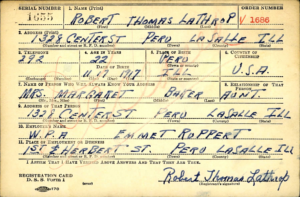 SERIAL NUMBER 1. NAME (Print) ORDER NUMBER
1655 ROBERT THOMAS LATHROP V 1686
2. ADDRESS (Print)
1328 CENTER ST PERU LASALLE ILL
3. TELEPHONE 4. AGE IN YEARS 5. PLACE OF BIRTH 6. COUNTRY OF CITIZENSHIP
292 22 PERU
DATE OF BIRTH
11 17 1917 ILL U.S.A.
7. NAME OF PERSON WHO WILL ALWAYS KNOW YOUR ADDRESS 8. RELATIONSHIP OF THAT PERSON
MRS. MARGARET BAKER AUNT
9. ADDRESS OF THAT PERSON
1328 CENTER ST PERU LASALLE ILL
10. EMPLOYER'S NAME
W.P.A EMMET ROPPERT
11. PLACE OF EMPLOYMENT OR BUSINESS
1ST & HERBERT ST. PERU LASALLE ILL
I AFFIRM THAT I HAVE VERIFIED ABOVE ANSWERS AND THAT THEY ARE TRUE.
REGISTRATION CARD
D. S. S. FORM 1
Robert Thomas Lathrop
(Registrant's signature)